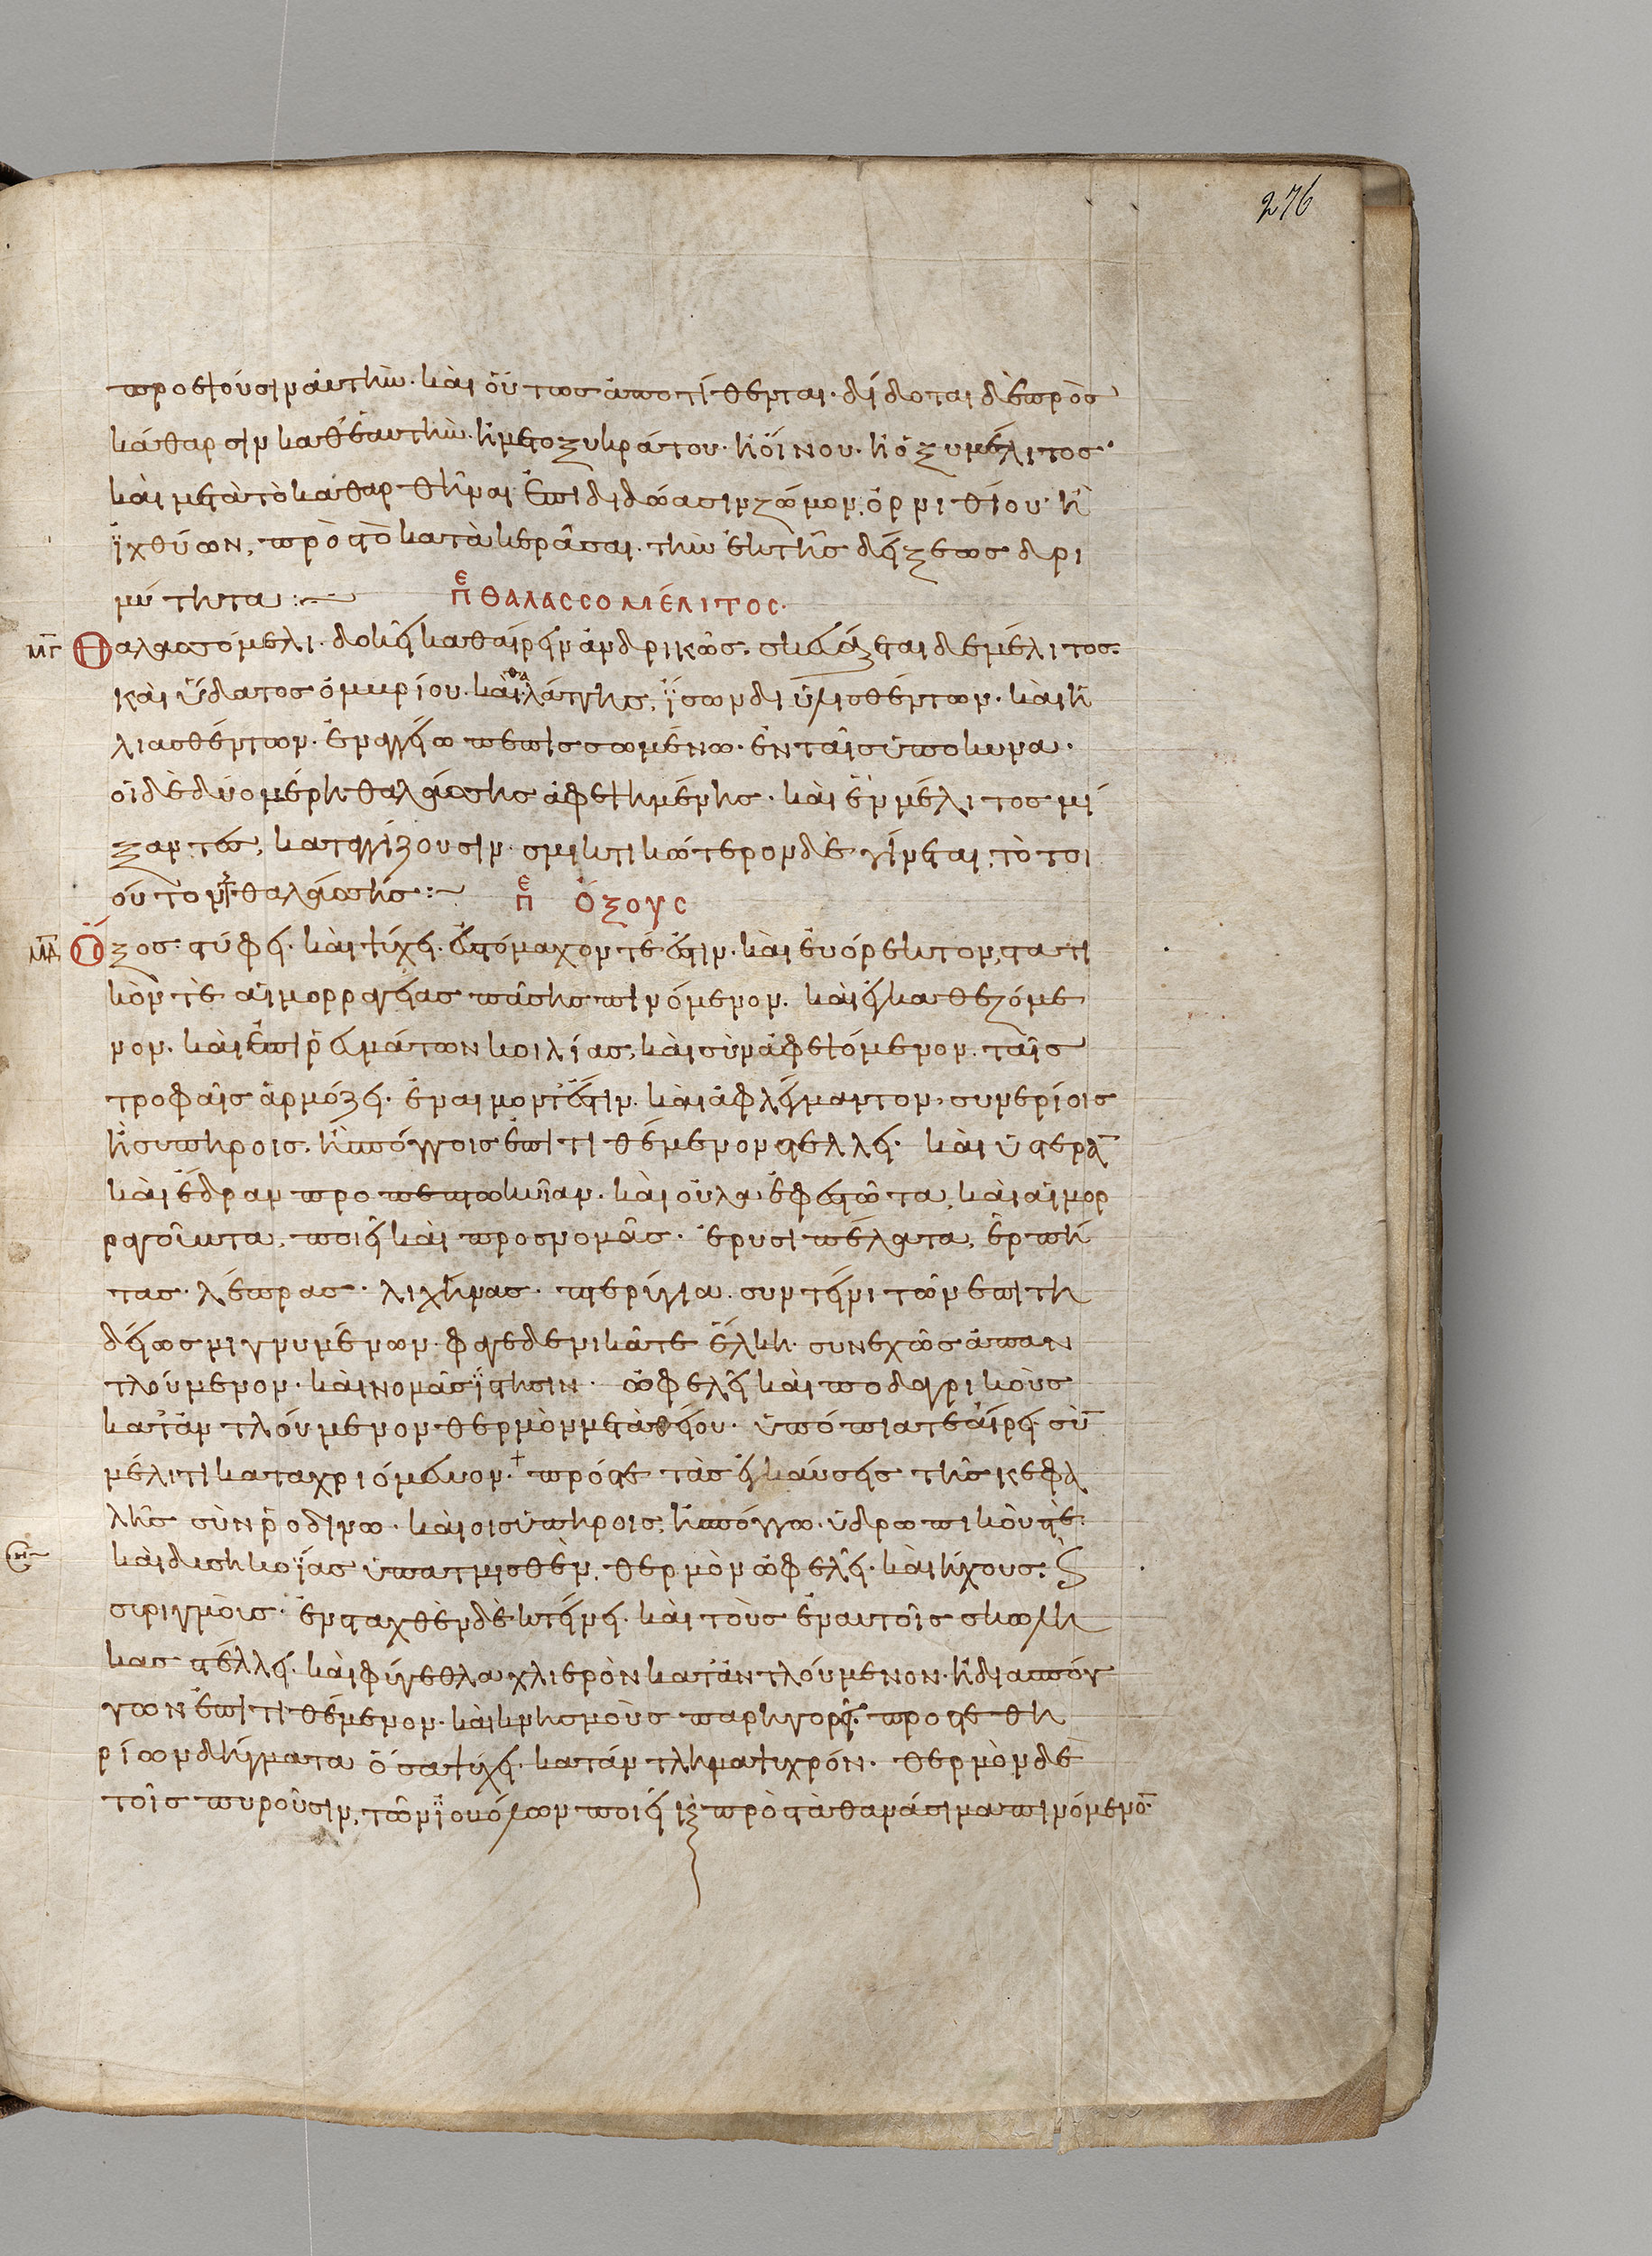 276
προσιοῦσιν αὐτὴν· καὶ οὕτως ἀποτίθενται· δίδοται δὲ πρὸς
κάθαρσιν καθ' ἑαυτὴν· ἢ μετ' ὀξυκράτου· ἢ οἴνου· ἢ ὀξυμέλιτος·
καὶ μετὰ τὸ καθαρθῆναι ἐπιδιδόασιν ζωμὸν ὀρνιθίου ἢ
ἰχθύων, πρὸς τὸ κατακεράσαι τὴν ἐκ τῆς δήξεως δρι
μύτητα :~ πε θαλασσομέλιτος·
μγ Θαλασσόμελι· δοκεῖ καθαίρειν ἀνδρικῶς· σκευάζεται δὲ μέλιτος·
καὶ ὕδατος ὀμβρίου· καὶ θαλάσσης, ἴσων διυλισθέντων· καὶ ἡ
λιασθέντων· ἐν ἀγγείω πεπισσωμένω· ἐν ταῖς ὑπὸ κυνα·
οἱ δὲ δύο μέρη θαλάσσης ἀφεψημένης· καὶ ἓν μέλιτος μί
ξαντες, καταγγίζουσιν· σμικτικώτερον δὲ γίνεται, τὸ τοι
οῦτον τῆς θαλάσσης :~ πε ὄξους
μδ Ὄξος· στύφει· καὶ ψύχει· εὐστόμαχόν τέ ἐστιν· καὶ εὐόρεκτον, στατι
κόν τε αἱμορραγίας πάσης πινόμενον· καὶ ἐγκαθεζόμε
νον· καὶ ἐπὶ ῥευμάτων κοιλίας, καὶ συναφεψόμενον ταῖς
τροφαῖς ἁρμόζει· ἔναιμόν τέ ἐστιν· καὶ ἀφλέγμαντον, συν ἐρίοις
οἰσυπηροῖς, ἢ σπόγγοις ἐπιτιθέμενον στέλλει· καὶ ὑστέραν
καὶ ἕδραν προπεπτωκυῖαν· καὶ οὖλα ἐφεστῶτα, καὶ αἱμορ
ραγοῦντα, ποιεῖ καὶ πρὸς νομὰς· ἐρυσιπέλατα, ἑρπῆ
τας· λέπρας· λιχῆνας· πτερύγια· σύν τινι τῶν ἐπιτη
δείως μιγνυμένων· φαγεδενικά τε ἕλκη· συνεχῶς ἀπαν
τλούμενον· καὶ νομὰς ἵστησιν· ὠφελεῖ καὶ ποδαγρικοὺς
καταντλούμενον θερμὸν μετὰ θείου· ὑπώπιά τε αἴρει σὺν
μέλιτι καταχριόμενον· πρός τε τὰς ἐγκαύσεις τῆς κεφα
λῆς σὺν ῥοδίνω· καὶ οἰσυπηροῖς, ἢ σπόγγω· ὑδρωπικούς τε·
καὶ δυσηκοίας ὑπατμισθὲν, θερμὸν ὠφελεῖ· καὶ ἤχους·
συριγμούς· ἐνσταχθὲν δὲ κτείνει· καὶ τοὺς ἐν αὐτοῖς σκώλη
κας στέλλει· καὶ φύγεθλα χλιερὸν καταντλούμενον· ἢ διὰ σπόγ
γων ἐπιτιθέμενον· καὶ κνησμοὺς παρηγορεῖ· πρός τε θη
ρίων δήγματα ὅσα ψύχει κατάντλημα ψυχρόν· θερμὸν δὲ
τοῖς πυροῦσιν, τῶν ἰοβόλων ποιεῖ καὶ πρὸς τὰ θανάσιμα πινόμενον